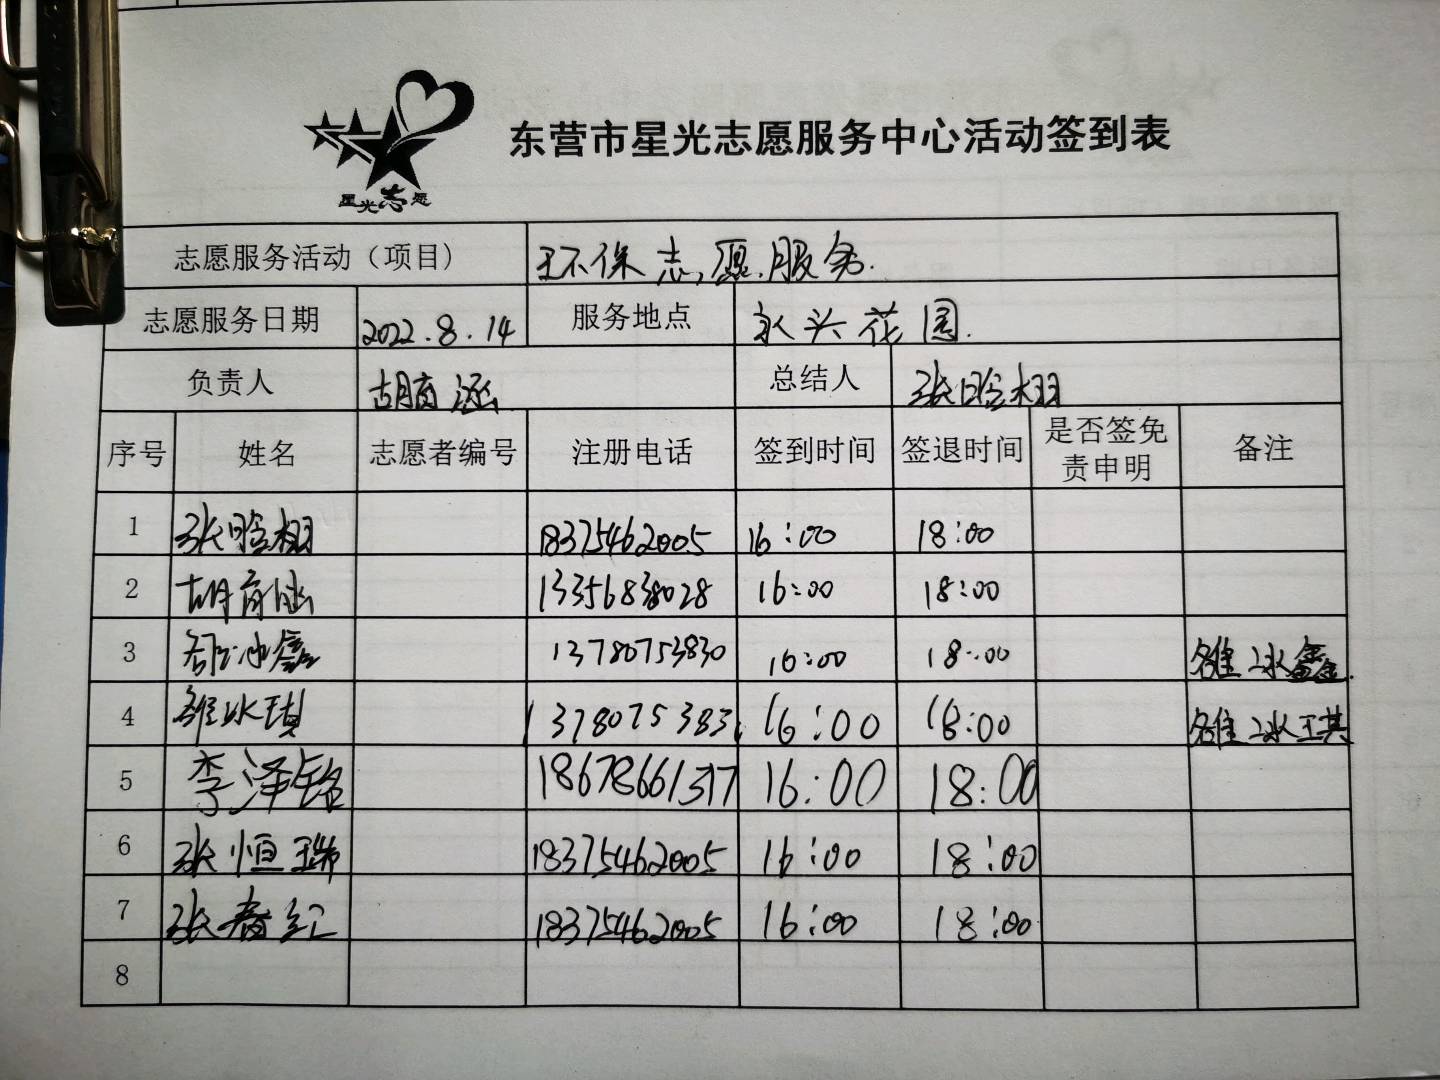 星光志愿
东营市星光志愿服务中心活动签到表
志愿服务活动（项目） 环保志愿服务.
志愿服务日期 2022.8.14 服务地点 永兴花园.
负责人 胡育涵 总结人 张晗栩
序号 姓名 志愿者编号 注册电话 签到时间 签退时间 是否签免责申明 备注
1 张晗栩 18375462005 16:00 18:00
2 胡育涵 13356838028 16:00 18:00
3 雒冰鑫 13780753830 16:00 18:00 雒冰鑫.
4 雒冰琪 1378075383 16:00 18:00 雒冰琪
5 李泽铭 18678661317 16:00 18:00
6 张恒瑞 18375462005 16:00 18:00
7 张春红 18375462005 16:00 18:00
8